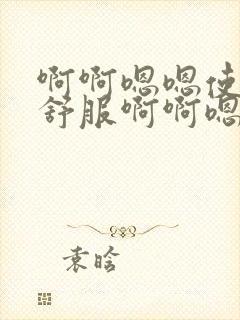 啊啊嗯嗯使
舒服啊啊嗯
袁晗